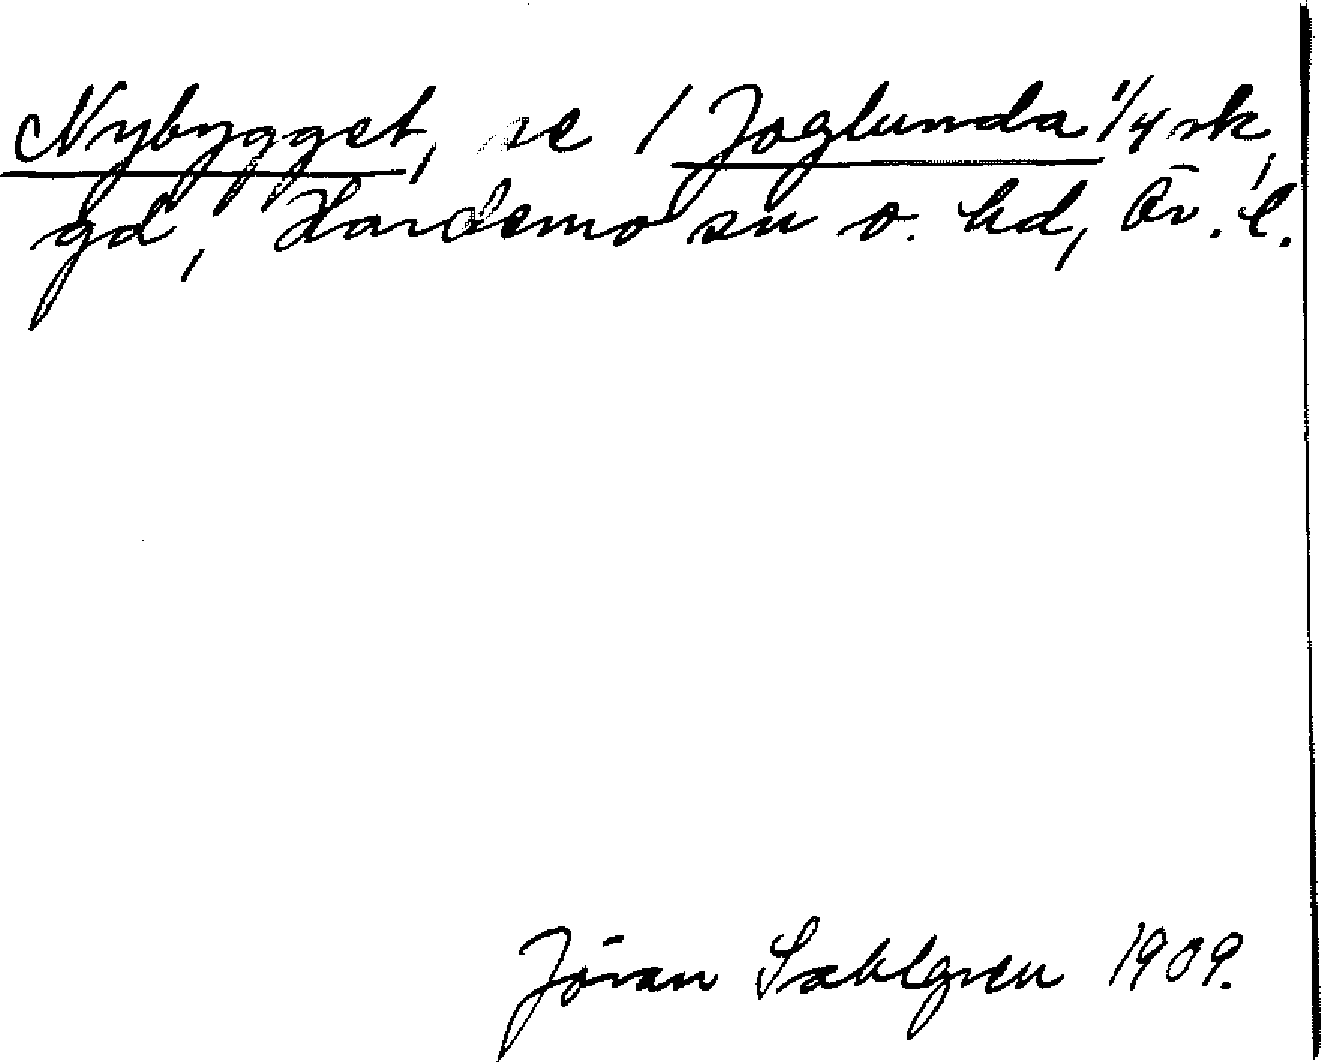 Nybygget, se / Joglunda 1/4 sk,
gd, Hardemo sn o. hd, Ör. l.
Jöran Sahlgren 1909.